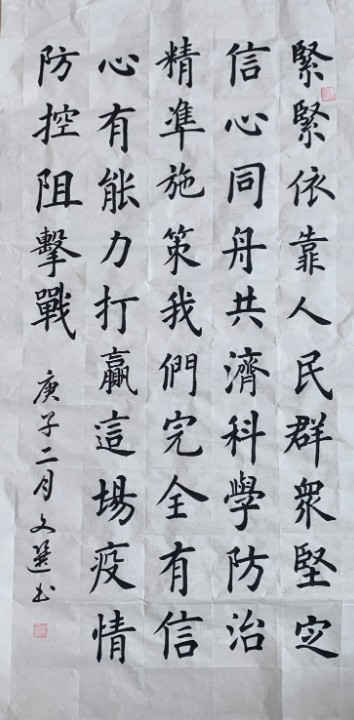 緊緊依靠人民群衆堅定
信心同舟共濟科學防治
精準施策我們完全有信
心有能力打贏這場疫情
防控阻擊戰
庚子二月文選书